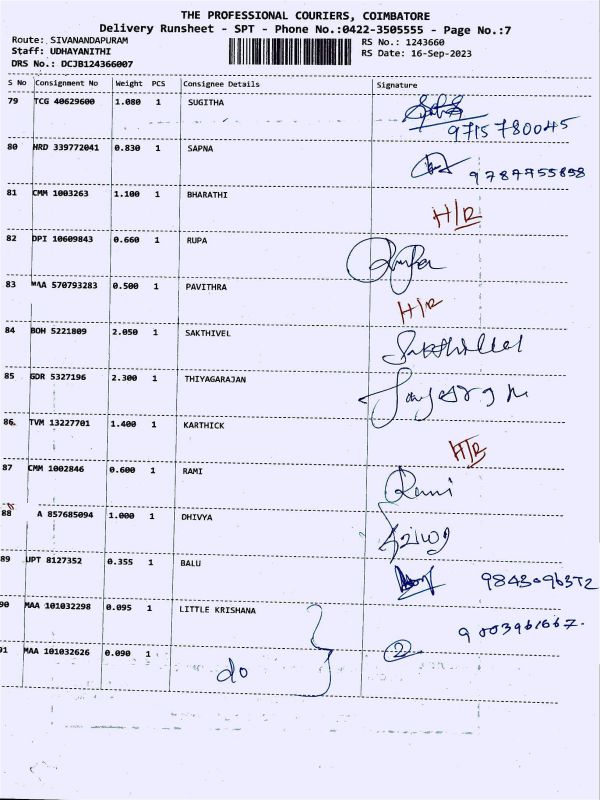 THE PROFESSIONAL COURIERS, COIMBATORE
Delivery Runsheet - SPT - Phone No.:0422-3505555 - Page No.:7
Route: SIVANANDAPURAM RS No.: 1243660
Staff: UDHAYANITHI RS Date: 16-Sep-2023
DRS No.: DCJB124366007
S No Consignment No Weight PCS Consignee Details Signature
79 TCG 40629600 1.080 1 SUGITHA
9715780045
80 HRD 339772041 0.830 1 SAPNA
9787755898
81 CMM 1003263 1.100 1 BHARATHI
H/R
82 DPI 10609843 0.660 1 RUPA
83 MAA 570793283 0.500 1 PAVITHRA
H/R
84 BOH 5221809 2.050 1 SAKTHIVEL
Sakthivel
85 GDR 5327196 2.300 1 THIYAGARAJAN
86 TVM 13227701 1.400 1 KARTHICK
H/R
87 CMM 1002846 0.600 1 RAMI
Rami
88 A 857685094 1.000 1 DHIVYA
89 UPT 8127352 0.355 1 BALU
9843096372
90 MAA 101032298 0.095 1 LITTLE KRISHANA
9003961667.
91 MAA 101032626 0.090 1 do 2